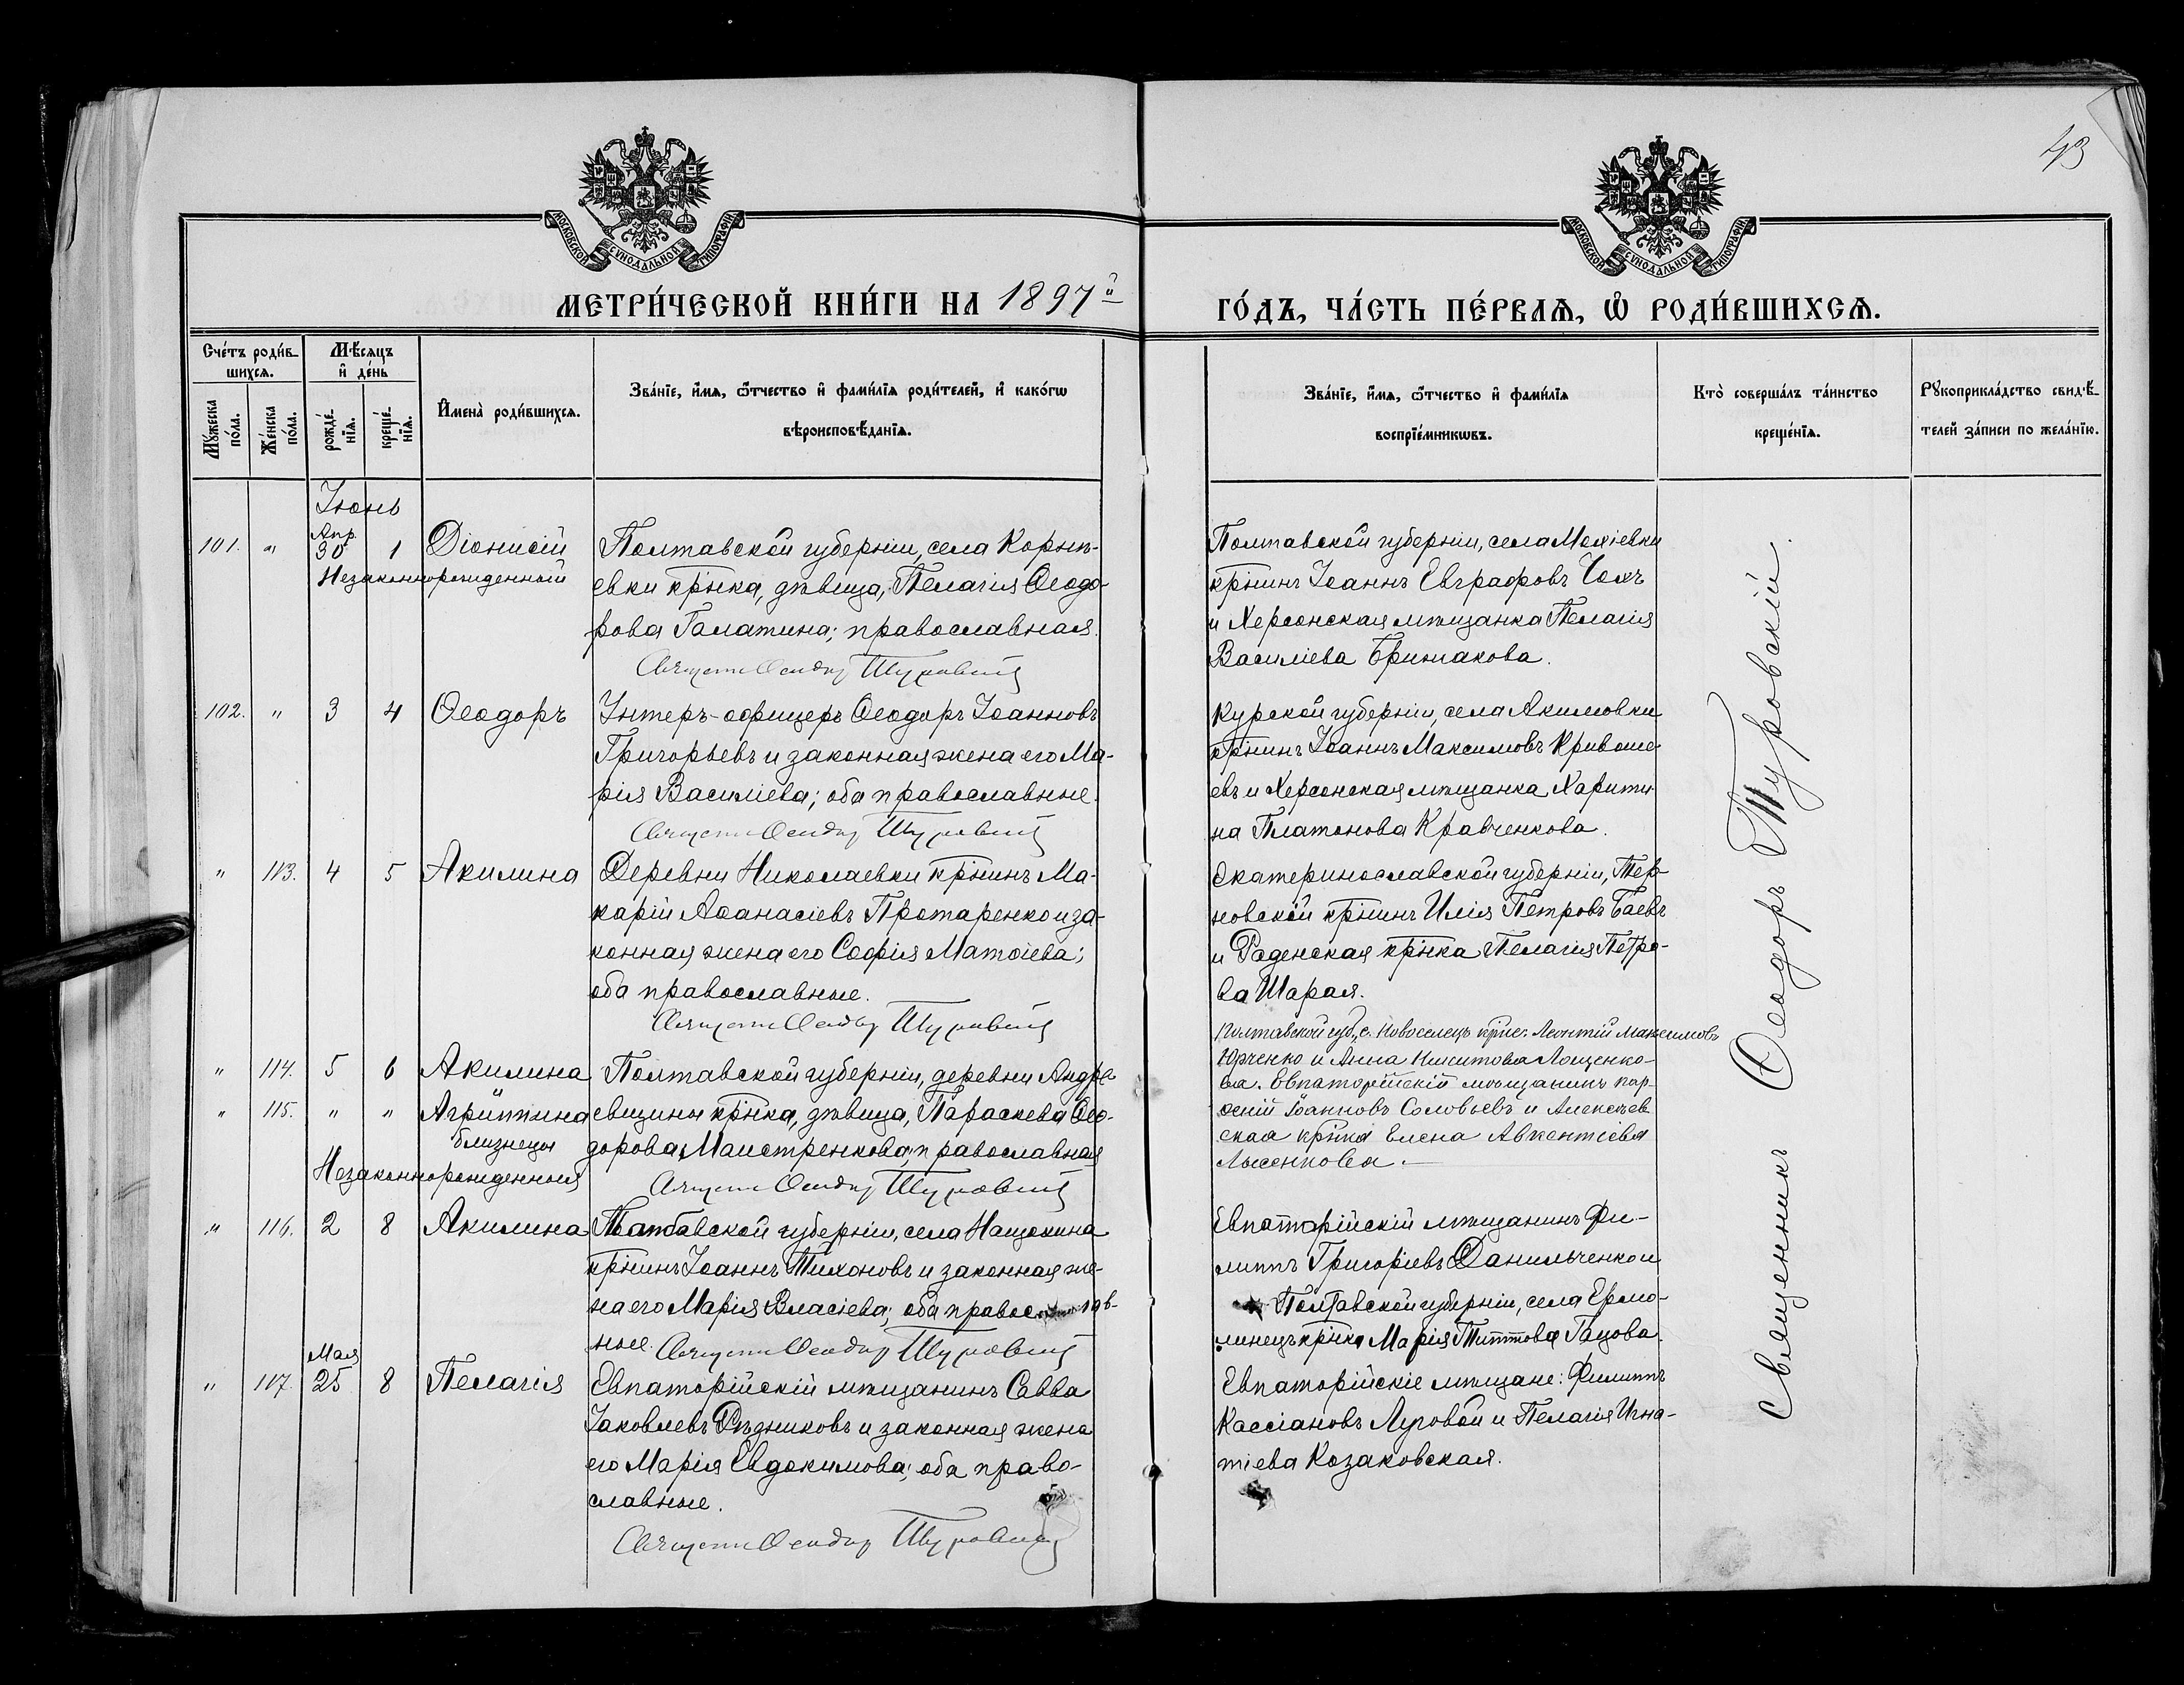 43
МОСКОВСКОЙ СѴНОДАЛЬНОЙ ТИПОГРАФІИ
МОСКОВСКОЙ СѴНОДАЛЬНОЙ ТИПОГРАФІИ
МЕТРИ́ЧЕСКОЙ КНИ́ГИ НА 1897й
ГО́ДЪ, ЧА́СТЬ ПЕ́РВАЯ, Ѡ РОДИ́ВШИХСЯ.
Сче́тъ роди́в-
шихся.
Мꙋ́жеска по́ла.
Же́нска по́ла.
Мѣ́сяцъ
и҆ де́нь
рожде́нїя.
креще́нїя.
И҆мена̀ роди́вшихся.
Зва́нїе, и҆́мя, ѻ҆́тчество и҆ фами́лїя роди́телей, и҆ како́гѡ
вѣроисповѣ́данїя.
Зва́нїе, и҆́мя, ѻ҆́тчество и҆ фами́лїя
воспрїе́мникѡвъ.
Кто̀ соверша́лъ та́инство
креще́нїя.
Рꙋкоприкла́дство свидѣ́-
телей за́писи по жела́нїю.
Іюнь
101. " Апр. 30 1 Діонисій
Незаконнорожденный
Полтавской губерніи, села Корнѣ-
евки кр҃нка, дѣвица, Пелагія Ѳеодо-
рова Галатина; православная.
Священ. Ѳеодор Туровскій
Полтавской губерніи, села Мохіевки
кр҃нинъ Іоаннъ Евграфовъ Чохъ
и Херсонская мѣщанка Пелагія
Василіева Бримакова.
102. " 3 4 Ѳеодоръ
Унтеръ-офицеръ Ѳеодоръ Іоанновъ
Григорьевъ и законная жена его Ма-
рія Василіева; оба православные.
Священ. Ѳеодор Туровскій
Курской губерніи, села Акимовки
кр҃нинъ Іоаннъ Максимовъ Кривоше-
евъ и Херсонская мѣщанка Харити-
на Платонова Кравченкова.
" 113. 4 5 Акилина
Деревни Николаевки кр҃нинъ Ма-
карій Аѳанасіевъ Протаренко и за-
конная жена его Софія Матѳіева;
оба православные.
Священ. Ѳеодор Туровскій
Екатеринославской губерніи, Тер-
новской кр҃нинъ Илія Петровъ Баевъ
и Раденская кр҃нка Пелагія Петро-
ва Шарая.
" 114. 5 6 Акилина
" 115. " " Агриппина
близнецы
Незаконнорожденныя
Полтавской губерніи, деревни Андре-
евщины кр҃нка, дѣвица, Параскева Ѳео-
дорова Маистренкова; православная
Священ. Ѳеодор Туровскій
Полтавской губ., с. Новоселецъ Леонтій Максимовъ
Юрченко и Анна Никитова Лощенко-
ва. Евпаторійскій мѣщанинъ
Іоанновъ Соловьевъ и Алексѣев-
ская кр҃нка Елена Авкентіева
Лысенкова.
" 116. 2 8 Акилина
Полтавской губерніи, села Нащокина
кр҃нинъ Іоаннъ Тихоновъ и законная же-
на его Марія Власіева; оба православ-
ные. Священ. Ѳеодор Туровскій
Евпаторійскій мѣщанинъ Фи-
липпъ Григоріевъ Данильченко и
Полтавской губерніи, села Ермо-
линецъ кр҃нка Марія Титова Гацова.
" 117. Мая 25 8 Пелагія
Евпаторійскій мѣщанинъ Савва
Іаковлевъ Рѣдниковъ и законная жена
его Марія Евдокимова; оба право-
славные.
Священ. Ѳеодор Туровскій
Евпаторійскіе мѣщане: Филиппъ
Кассіановъ Луговой и Пелагія Игна-
тіева Козаковская.
Священникъ Ѳеодоръ Туровскій.